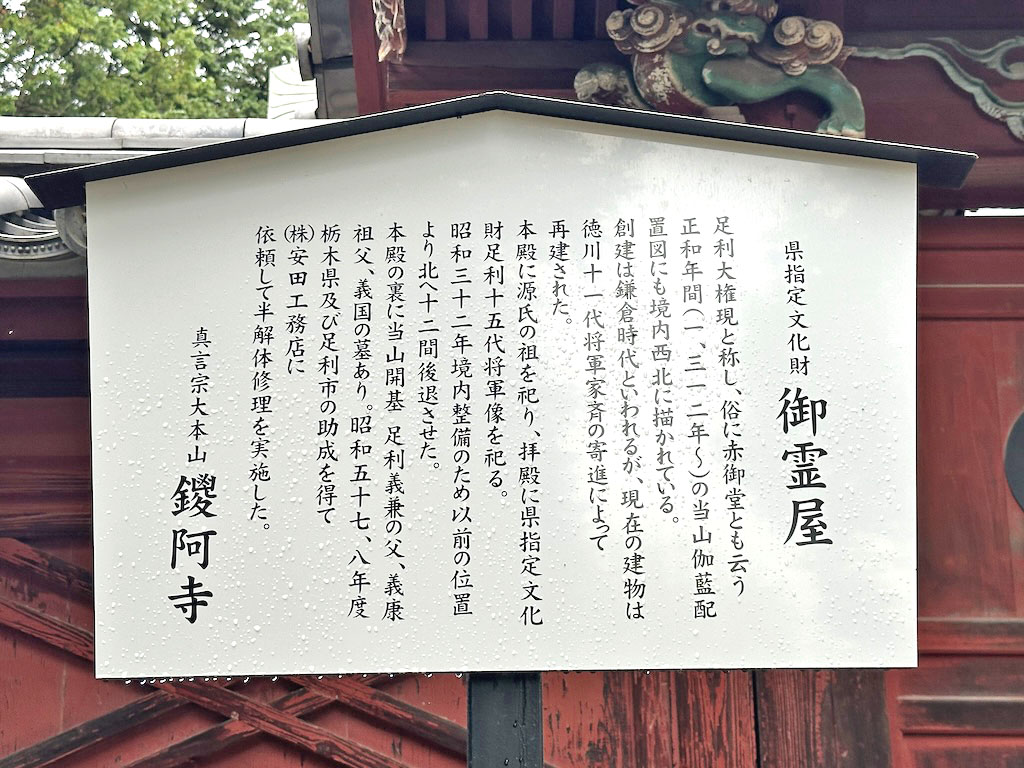 県指定文化財 御霊屋
足利大権現と称し、俗に赤御堂とも云う
正和年間(一、三一二年〜)の当山伽藍配
置図にも境内西北に描かれている。
創建は鎌倉時代といわれるが、現在の建物は
徳川十一代将軍家斉の寄進によって
再建された。
本殿に源氏の祖を祀り、拝殿に県指定文化
財足利十五代将軍像を祀る。
昭和三十二年境内整備のため以前の位置
より北へ十二間後退させた。
本殿の裏に当山開基 足利義兼の父、義康
祖父、義国の墓あり。昭和五十七、八年度
栃木県及び足利市の助成を得て
(株)安田工務店に
依頼して半解体修理を実施した。
真言宗大本山 鑁阿寺